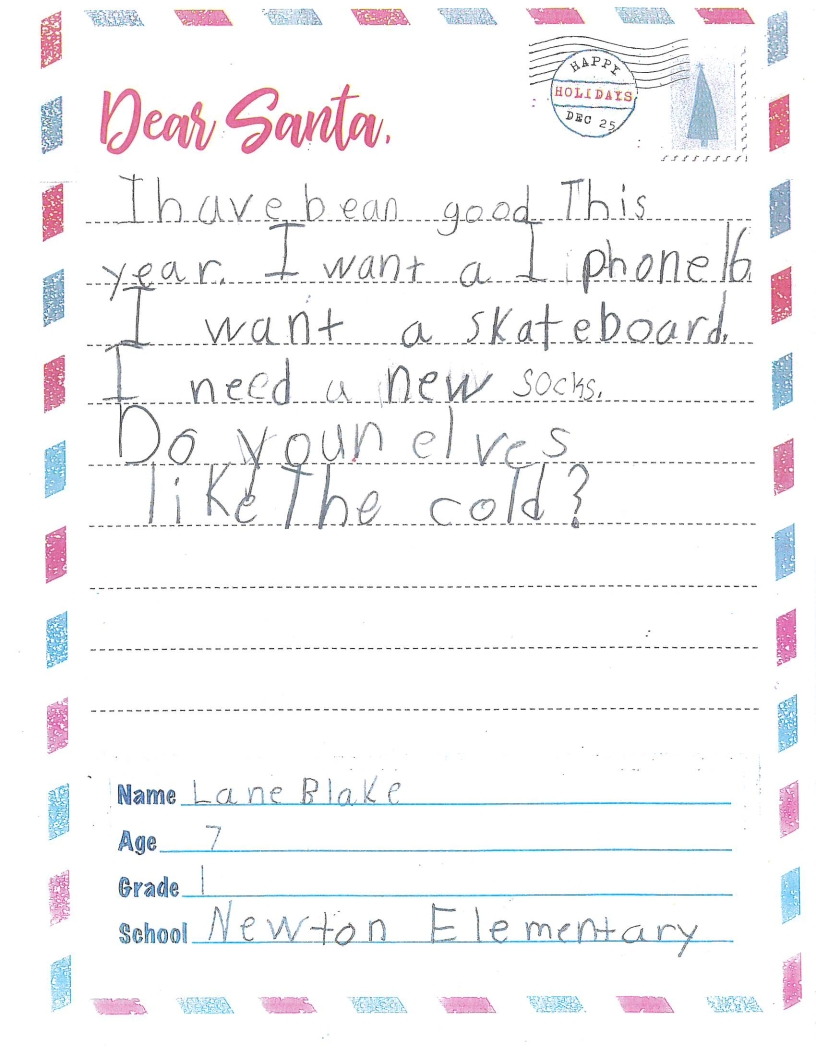 HAPPY
HOLIDAYS
DEC 25
Dear Santa,
I have bean good This
year. I want a I phone 16
I want a skateboard.
I need a new socks.
Do youn elves
like The cold?
Name Lane Blake
Age 7
Grade 1
School Newton Elementary